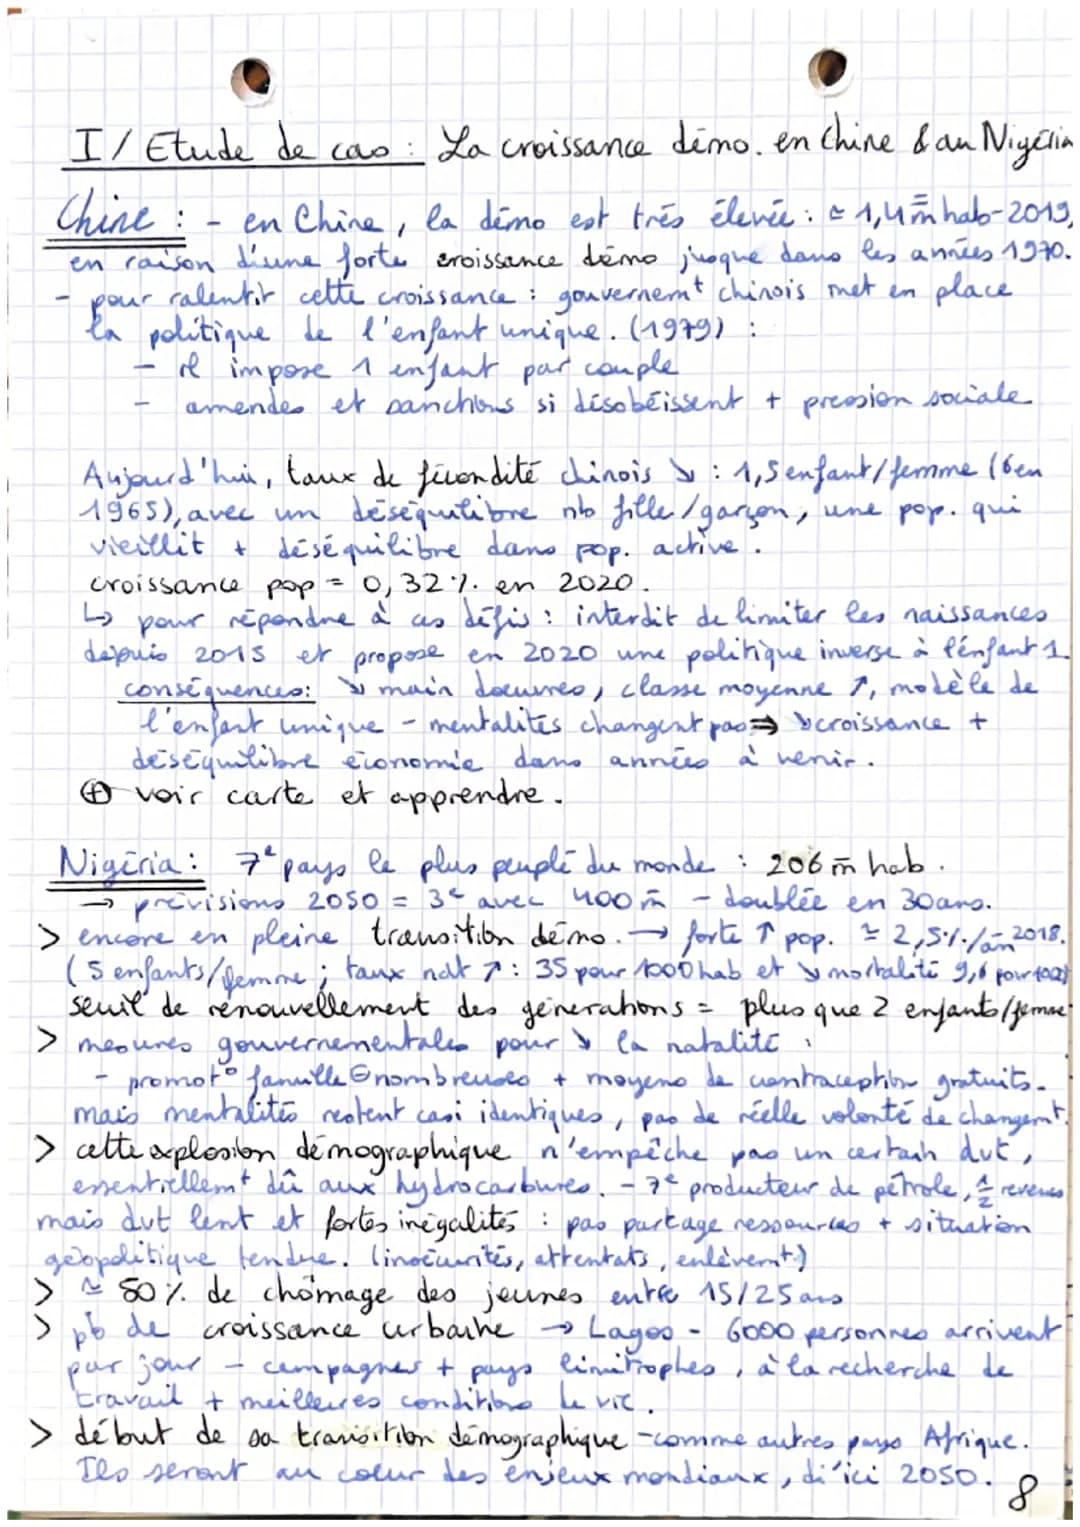 I/ Etude de cas : La croissance démo. en Chine & au Nigéria
Chine : - en Chine, la démo est très élevée : ≃ 1,4 m̄ hab - 2019,
en raison d'une forte croissance démo jusque dans les années 1970.
- pour ralentir cette croissance : gouvernemt chinois met en place
la politique de l'enfant unique. (1979) :
- il impose 1 enfant par couple
- amendes et sanctions si désobéissent + pression sociale
Aujourd'hui, taux de fécondité chinois ↘ : 1,5 enfant/femme (6 en
1965), avec un déséquilibre nb fille/garçon, une pop. qui
vieillit + déséquilibre dans pop. active.
croissance pop = 0,32 %. en 2020.
↳ pour répondre à ces défis : interdit de limiter les naissances
depuis 2015 et propose en 2020 une politique inverse à l'enfant 1.
conséquences: ↘ main doeuvres, classe moyenne ↗, modèle de
l'enfant unique - mentalités changent pas ⇒ ↘ croissance +
déséquilibre économie dans années à venir.
⊕ voir carte et apprendre.
Nigéria : 7e pays le plus peuplé du monde : 206 m̄ hab.
→ prévisions 2050 = 3e avec 400 m̄ - doublée en 30 ans.
> encore en pleine transition démo. → forte ↑ pop. ≃ 2,5%/an 2018.
(5 enfants/femme ; taux nat ↗ : 35 pour 1000 hab et ↘ mortalité 9,6 pour 1000)
seuil de renouvellement des générations = plus que 2 enfants/femme
> mesures gouvernementales pour ↘ la natalité :
- promot° famille ⊖ nombreuses + moyens de contraception gratuits.
mais mentalités restent casi identiques, pas de réelle volonté de changemt.
> cette explosion démographique n'empêche pas un certain dvt,
essentiellemt dû aux hydrocarbures. - 7e producteur de pétrole, ½ revenus
mais dvt lent et fortes inégalités : pas partage ressources + situation
géopolitique tendue. (insécurités, attentats, enlèvemt)
> ≃ 50 %. de chômage des jeunes entre 15/25 ans
> pb de croissance urbaine → Lagos - 6000 personnes arrivent
par jour - campagnes + pays limitrophes, à la recherche de
travail + meilleures conditions de vie.
> début de sa transition démographique - comme autres pays Afrique.
Ils seront au coeur des enjeux mondiaux, d'ici 2050.
8